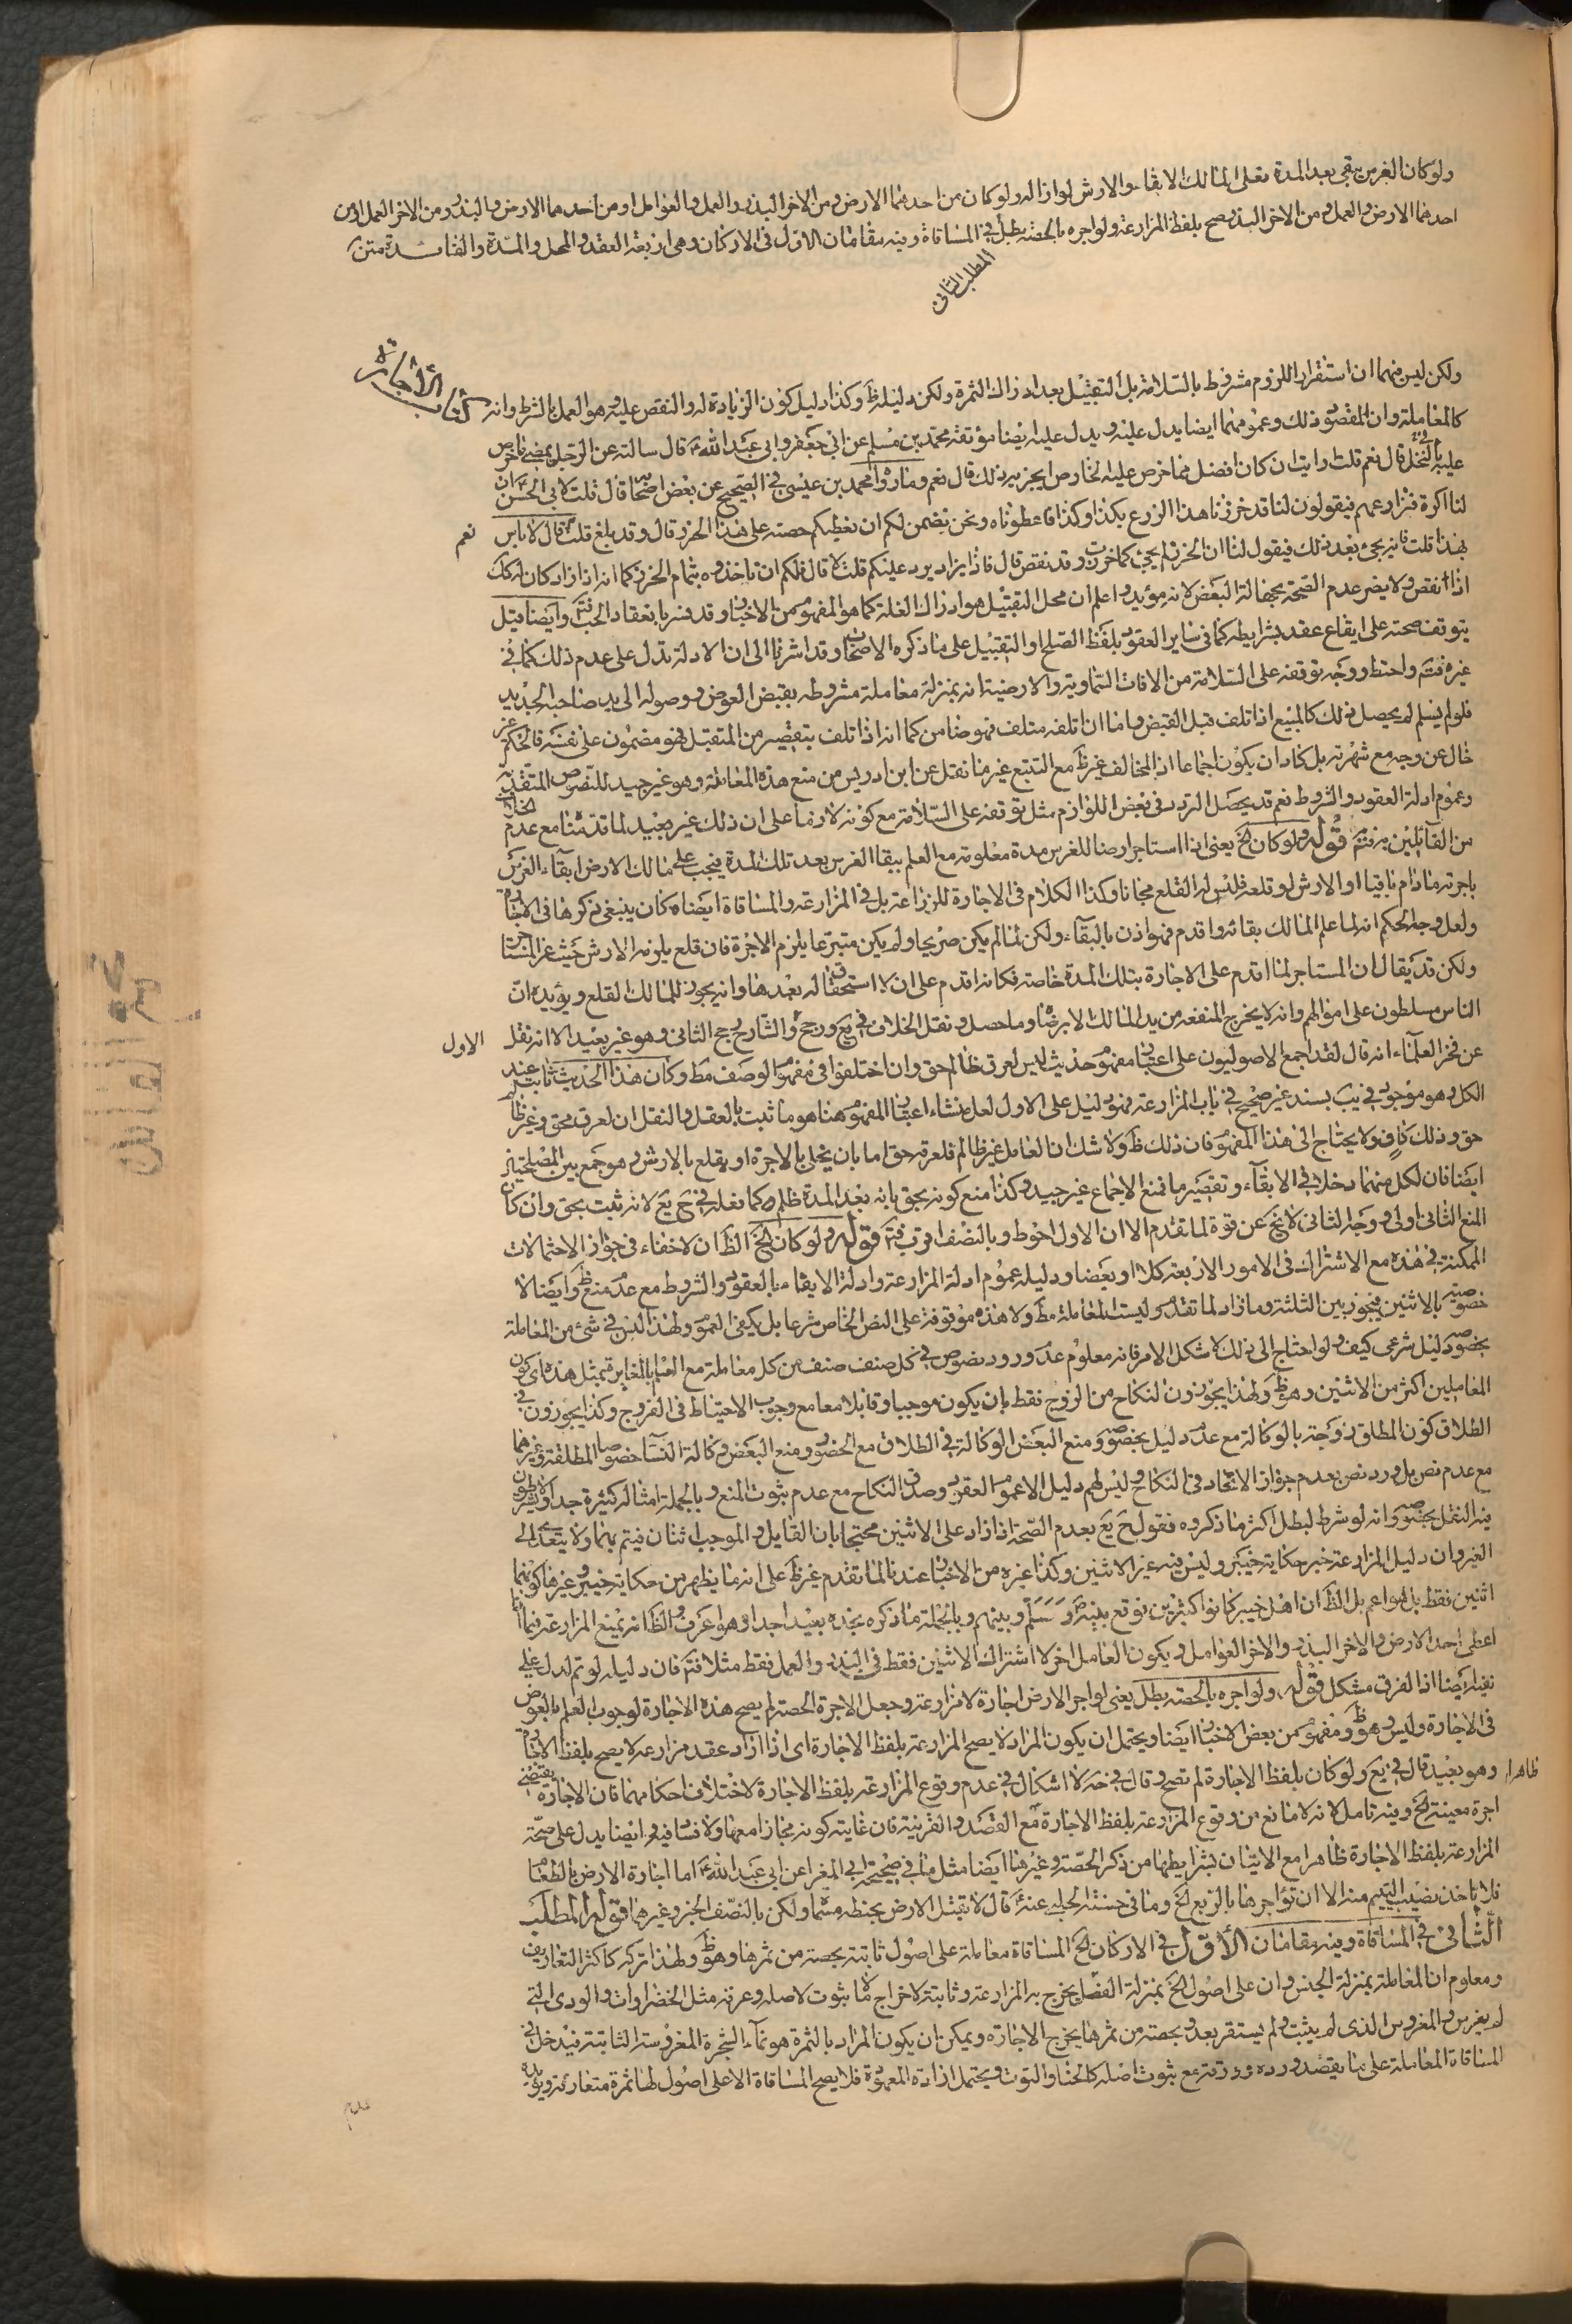 ولو كان الغرس يبقى بعد المدة فعلى المالك الابقاء او الارش لو ازاله ولو كان من احدهما الارض ومن الاخر البذر والعمل والعوامل او من احدهما الارض والبذر ومن الاخر العمل او من
احدهما الارض والعمل ومن الاخر البذر صح بلفظ المزارعة ولو اجره بالحصة بطل في المساقاة وفيه مقامان الاول في الاركان وهي اربعة العقد والمحل والمدة والفائدة متن
المطلب الثاني
كتاب الاجارة
ولكن ليس منهما ان استقرار اللزوم مشروط بالسلامة بل التقبيل بعد ادراك الثمرة ولكن دليله ظ وكذا دليل كون الزيادة له والنقص عليه وهو العمل بالشرط وانه
كالمعاملة وان المقصود ذلك وعمومهما ايضا يدل عليه ويدل عليه ايضا موثقة محمد بن مسلم عن ابي جعفر وابي عبد الله ع قال سالته عن الرجل يمضي ما خرص
عليه في النخل قال نعم قلت ارايت ان كان افضل مما خرص عليه الخارص ايجزيه ذلك قال نعم وما رواه محمد بن عيسى في الصحيح عن بعض اصحابنا قال قلت لابي الحسن ع ان
لنا اكرة فنزارعهم فيقولون لنا قد خرزنا هذا الزرع بكذا وكذا فاعطوناه ونحن نضمن لكم ان نعطيكم حصته على هذا الحرز قال وقد بلغ قلت نعم قال لا باس
بهذا قلت فانه يجئ بعد ذلك فيقول لنا ان الحرز لم يجئ كما حرزت وقد نقص قال فاذا زاد يرد عليكم قلت لا قال فلكم ان تاخذوه بتمام الحرز كما انه اذا زاد كان له كك
اذا نقص ولا يضر عدم الصحة بجهالة البعض لانه مؤيد واعلم ان محل التقبيل هو ادراك الغلة كما هو المفهوم من الاخبار وقد فسر بانعقاد الحب فتم وايضا قيل
يتوقف صحته على ايقاع عقد بشرايطه كما في ساير العقود بلفظ الصلح او التقبيل على ما ذكره الاصحاب وقد اشرنا الى ان الادلة تدل على عدم ذلك كما في
غيره فتم واحتط ووجه توقفه على السلامة من الافات السماوية والارضية انه بمنزلة معاملة مشروطه بقبض العوض ووصوله الى يد صاحبه الجديد
فلو لم يسلم لم يحصل ذلك كالمبيع اذا تلف قبل القبض واما ان اتلفه متلف فهو ضامن كما انه اذا تلف بتقصير من المتقبل فهو مضمون على نفسه فالحكم غير
خال عن وجه مع شهرته بل كاد ان يكون اجماعا اذ المخالف غير ظ مع التتبع غير ما نقل عن ابن ادريس من منع هذه المعاملة وهو غير جيد للنصوص المتقدمة
وعموم ادلة العقود والشروط نعم قد يحصل التردد في بعض اللوازم مثل توقفه على السلامة مع كونه لازما على ان ذلك غير بعيد لما قدمنا مع عدم الخلاف
من القائلين به فتم قوله ولو كان الخ يعني اذا استاجر ارضا للغرس مدة معلومة مع العلم ببقاء الغرس بعد تلك المدة فيجب على مالك الارض ابقاء الغرس
باجرته مادام باقيا او الارش لو قلعه فليس له القلع مجانا وكذا الكلام في الاجارة للزراعة بل في المزارعة والمساقاة ايضا وكان ينبغي ذكرها في الاجارة
ولعل وجه الحكم انه لما علم المالك بقائه واقدم فهو اذن بالبقاء ولكن لما لم يكن صريحا ولم يكن متبرعا يلزم الاجرة فان قلع يلزمه الارش حيث غر المستاجر
ولكن قد يقال ان المستاجر لما اقدم على الاجارة بتلك المدة خاصة فكانه اقدم على ان لا استحقاق له بعدها وانه يجوز للمالك القلع ويؤيده ان
الناس مسلطون على اموالهم وانه لا يخرج المنفعة من يد المالك الا برضاه وما حصل ونقل الخلاف في يع ورجح والشارح رجح الثاني وهو غير بعيد الا انه نقل الاول
عن فخر العلماء انه قال لقد اجمع الاصوليون على اعتبار مفهوم حديث ليس لعرق ظالم حق وان اختلفوا في مفهوم الوصف مط وكان هذا الحديث ثابت عند
الكل وهو موجود في يب بسند غير صحيح في باب المزارعة فهو دليل على الاول لعل منشاء اعتبار المفهوم هنا هو ما ثبت بالعقل والنقل ان لعرق محق وغير ظالم
حق وذلك كاف ولا يحتاج الى هذا المفهوم فان ذلك ظ ولا شك ان العامل غير ظالم فلعرقه حق اما بان يخلى بالاجرة او يقلع بالارش وهو جمع بين المصلحتين
ايضا فان لكل منهما دخلا في الابقاء وتقصير ما فمنع الاجماع غير جيد وكذا منع كونه بحق بانه بعد المدة ظلم كما فعله في ح يع لانه ثبت بحق وان كان
المنع الثاني اولى ووجه الثاني لا يخ عن قوة لما تقدم الا ان الاول احوط وبالنصف اقرب فتم قوله ولو كان الخ الظ ان لا خفاء في جواز الاحتمالات
الممكنة في هذه مع الاشتراك في الامور الاربعة كلا او بعضا ودليله عموم ادلة المزارعة وادلة الايفاء بالعقود والشروط مع عدم منع ظ وايضا لا
خصوصية بالاثنين فيجوز بين الثلثة وما زاد لما تقدم وليست المعاملة مط ولا هذه موقوفة على النص الخاص شرعا بل يكفي العموم ولهذا ليس في شئ من المعاملة
بخصوصه دليل شرعي كيف ولو احتاج الى ذلك لاشكل الامر فانه معلوم عدم ورود نصوص في كل صنف صنف من كل معاملة مع العلم بالمغايرة بمثل هذه اي كون
المعاملين اكثر من الاثنين وهو ظ ولهذا يجوزون النكاح من الزوج فقط بان يكون موجبا وقابلا معا مع وجوب الاحتياط في الفروج وكذا يجوزون في
الطلاق كون المطلق زوجته بالوكالة مع عدم دليل بخصوصه ومنع البعض الوكالة في الطلاق مع الحضور ومنع البعض وكالة النساء خصوصا المطلقة وغيرهما
مع عدم نص بل ورد نص بعدم جواز الاتحاد في النكاح وليس لهم دليل الا عموم العقود وصدق النكاح مع عدم ثبوت المنع وبالجملة امثاله كثيرة جدا ولا يشترطون
فيه النقل بخصوصه وانه لو شرط لبطل اكثر ما ذكروه فقول ح يع بعدم الصحة اذا زاد على الاثنين محتجا بان القابل والموجب اثنان فيتم بهما ولا يتعدى الى
الغير وان دليل المزارعة خبر حكاية خيبر وليس فيه غير الاثنين وكذا غيره من الاخبار عندنا لما تقدم غير ظ على انه ما يظهر من حكاية خيبر وغيرها كونهما
اثنين فقط بل هو اعم بل الظ ان اهل خيبر كانوا كثيرين توقع بينه ص وسلم وبينهم وبالجملة ما ذكره نجده بعيدا جدا وهو اعرف والظ انه يمنع المزارعة فيما
اعطى احد الارض والاخر البذر والاخر العوامل ويكون العامل اخر لا اشتراك الاثنين فقط في البذر والعمل فقط مثلا فتم فان دليله لو تم لدل على
نفيه ايضا اذ الفرق مشكل قوله ولو اجره بالحصة بطل يعني لو اجر الارض اجارة لا مزارعة وجعل الاجرة الحصة لم يصح هذه الاجارة لوجوب العلم بالعوض
في الاجارة وليس وهو ظ ومفهوم من بعض الاخبار ايضا ويحتمل ان يكون المراد لا يصح المزارعة بلفظ الاجارة اي اذا اراد عقد مزارعة لا يصح بلفظ الاجارة
ظاهرا وهو بعيد قال في يع ولو كان بلفظ الاجارة لم تصح وقال في حه لا اشكال في عدم وقوع المزارعة بلفظ الاجارة لاختلاف احكامهما فان الاجارة يقتضي
اجرة معينة الخ وفيه تامل لانه لا مانع من وقوع المزارعة بلفظ الاجارة مع القصد والقرينة فان غايته كونه مجازا معها ولا فساد فيه وايضا يدل على صحة
المزارعة بلفظ الاجارة ظاهرا مع الاتيان بشرايطها من ذكر الحصة وغيرها ايضا مثل ما في صحيحة ابي المغرا عن ابي عبد الله ع اما اجارة الارض بالطعام
فلا تاخذ نصيب اليتيم منه الا ان تؤاجرها بالربع الخ وما في حسنة الحلبي عنه ع قال لا تقبل الارض بحنطة مسماة ولكن بالنصف الخبر وغيرهما قوله المطلب
الثاني في المساقاة وفيه مقامان الاول في الاركان الخ المساقاة معاملة على اصول ثابتة بحصة من ثمرها وهو ظ ولهذا تركه كاكثر التعاريف
ومعلوم ان المعاملة بمنزلة الجنس وان على اصول الخ بمنزلة الفصل يخرج به المزارعة وثابتة لاخراج ما لا ثبوت لاصله وعرقه مثل الخضراوات والودي التي
لم يغرس والمغروس الذي لم يثبت ولم يستقر بعد وبحصة من ثمرها يخرج الاجارة ويمكن ان يكون المراد بالثمرة هو نماء الشجرة المغروسة الثابتة فيدخل في
المساقاة المعاملة على ما يقصد ورده وورقه مع ثبوت اصله كالحنا والتوت ويحتمل ارادة المعهودة فلا يصح المساقاة الا على اصول لها ثمرة متعارفة ويؤيده